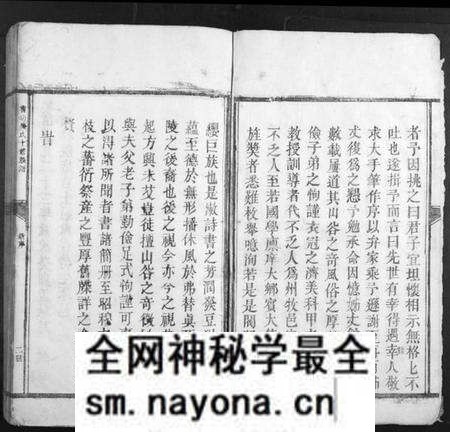 者予因挑之曰君子宜坦懷相示無格上不
吐也遂揖予而言曰先世有幸得遇幸人敬
求大手筆作序以弁家乘予遜謝
丈後爲之懇予勉承命因憶
數載屢道其山谷之奇風俗之厚
儉子弟之恂謹衣冠之濟美科甲
教授訓導者代不乏人爲州牧邑
不乏人至若國學庠序大鄉賓大
旌奬者悉難枚舉噫洵若是是閥
纓巨族也是澈詩書之芳潤發豆
蘊至德於無形播休風於弗替眞
陵之後裔也後之視今亦今之視
起方興未艾豈徒擅山谷之奇
與夫父老子弟勤儉足式恂謹可
以得諸所聞者書諸簡册至昭穆
枝之蕃衍祭產之豐厚舊牒詳之
贅
旹
全网神秘学最全
sm.nayona.cn